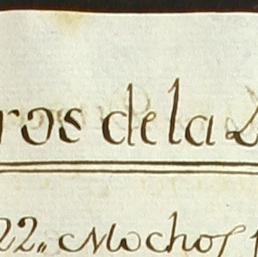 ros de la
22,, Mochos